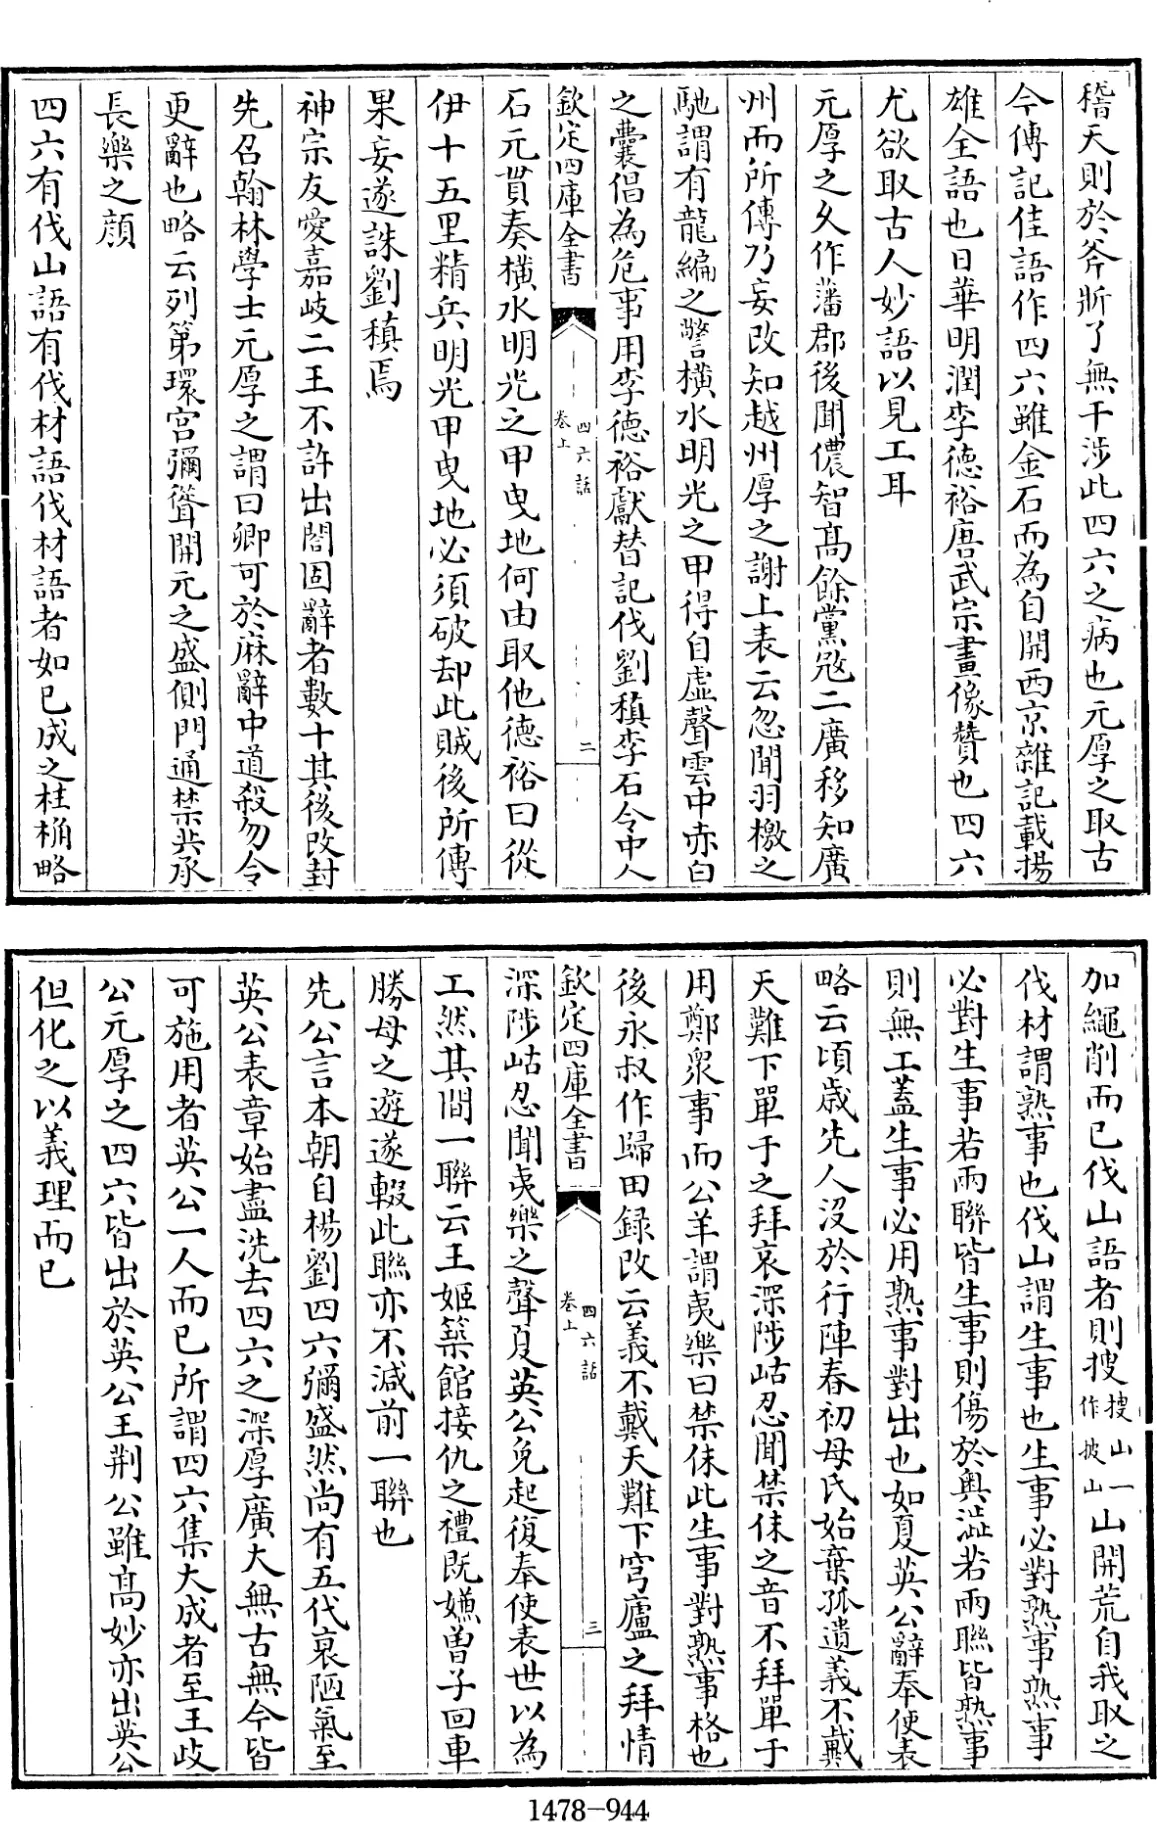 稽天則於斧斨了無干涉此四六之病也元厚之取古
今傳記佳語作四六雖金石而為自開西京雜記載揚
雄全語也日華明潤李德裕唐武宗畫像贊也四六
尤欲取古人妙語以見工耳
元厚之久作藩郡後聞儂智髙餘黨冦二廣移知廣
州而所傳乃妄改知越州厚之謝上表云忽聞羽檄之
馳謂有龍編之警横水明光之甲得自虚聲雲中赤白
之囊倡為危事用李德裕獻替記伐劉稹李石令中人
欽定四庫全書
四六話
卷上
二
石元貫奏横水明光之甲曳地何由取他德裕曰從
伊十五里精兵明光甲曳地必須破却此賊後所傳
果妄遂誅劉稹焉
神宗友愛嘉岐二王不許出閤固辭者數十其後改封
先召翰林學士元厚之謂曰卿可於麻辭中道殺勿令
更辭也略云列第環宫彌聳開元之盛側門通禁共承
長樂之顔
四六有伐山語有伐材語伐材語者如已成之柱桷略
加繩削而已伐山語者則搜搜山一作披山山開荒自我取之
伐材謂熟事也伐山謂生事也生事必對熟事熟事
必對生事若兩聯皆生事則傷於奥澁若兩聯皆熟事
則無工蓋生事必用熟事對出也如夏英公辭奉使表
略云頃歳先人沒於行陣春初母氏始棄孤遺義不戴
天難下單于之拜哀深陟岵忍聞禁佅之音不拜單于
用鄭衆事而公羊謂夷樂曰禁佅此生事對熟事格也
後永叔作歸田録改云義不戴天難下穹廬之拜情
欽定四庫全書
四六話
卷上
三
深陟岵忍聞夷樂之聲夏英公免起復奉使表世以為
工然其間一聯云王姬築館接仇之禮既嫌曽子回車
勝母之遊遂輟此聯亦不減前一聯也
先公言本朝自楊劉四六彌盛然尚有五代衰陋氣至
英公表章始盡洗去四六之深厚廣大無古無今皆
可施用者英公一人而已所謂四六集大成者至王岐
公元厚之四六皆出於英公王荆公雖髙妙亦出英公
但化之以義理而已
1478-944